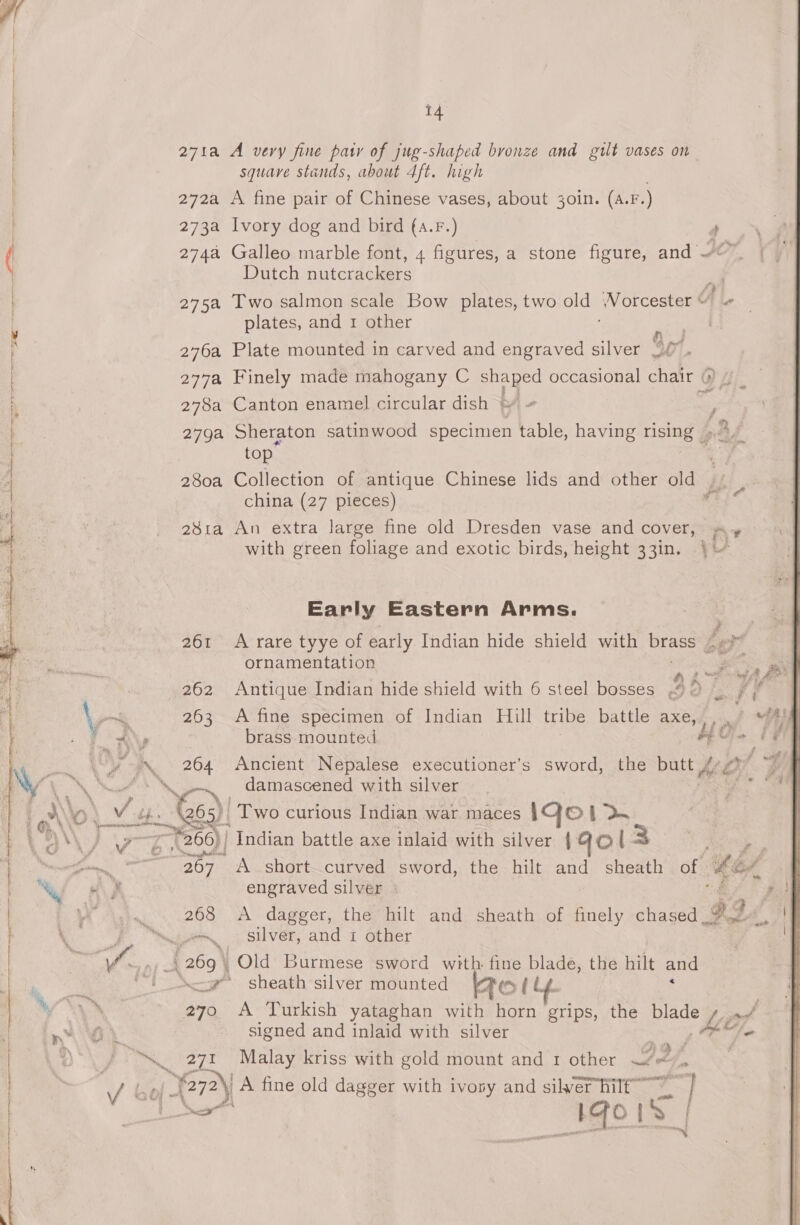 14
271a A very fine pair of jug-shaped bronze and gilt vases on
square stands, about 4ft. high
272a A fine pair of Chinese vases, about 30in. (A.F.)
273a Ivory dog and bird (A.F.)
274a Galleo marble font, 4 figures, a stone figure, and
Dutch nutcrackers
275a Two salmon scale Bow plates, two old Worcester
plates, and 1 other
276a Plate mounted in carved and engraved silver
277a Finely made mahogany C shaped occasional chair
278a Canton enamel circular dish
279a Sheraton satinwood specimen table, having rising
top
280a Collection of antique Chinese lids and other old
china (27 pieces)
281a An extra large fine old Dresden vase and cover,
with green foliage and exotic birds, height 33in.
Early Eastern Arms.
261 A rare tyye of early Indian hide shield with brass
ornamentation
262 Antique Indian hide shield with 6 steel bosses
263 A fine specimen of Indian Hill tribe battle axe,
brass mounted
264 Ancient Nepalese executioner's sword, the butt
damascened with silver
265 Two curious Indian war maces 19012
266 Indian battle axe inlaid with silver 19013
267 A short curved sword, the hilt and sheath of
engraved silver
268 A dagger, the hilt and sheath of finely chased
silver, and 1 other
269 Old Burmese sword with fine blade, the hilt and
sheath silver mounted 19014
270 A Turkish yataghan with horn grips, the blade
signed and inlaid with silver
271 Malay kriss with gold mount and 1 other
272 A fine old dagger with ivory and silver hilt
19015